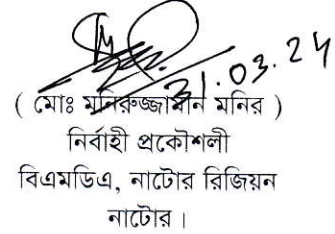 31.03.24
( মোঃ মনিরুজ্জামান মনির )
নির্বাহী প্রকৌশলী
বিএমডিএ, নাটোর রিজিয়ন
নাটোর।